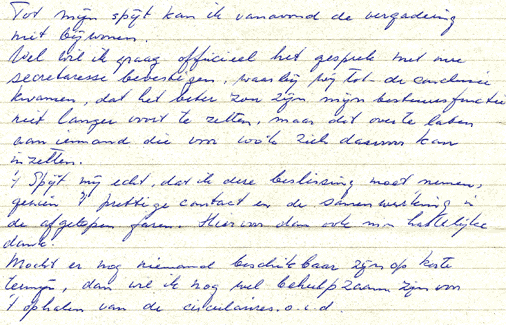 Tot mijn spijt kan ik vanavond de vergadering
niet bijwonen.
Wel wil ik graag officieel het gesprek met uw
secretaresse bevestigen, waarbij wij tot de conclusie
kwamen, dat het beter zou zijn mijn bestuursfunctie
niet langer voort te zetten, maar dat over te laten
aan iemand die voor zich daarvoor kan
inzetten.
't Spijt mij echt, dat ik deze beslissing moet nemen,
gezien 't prettige contact en de samenwerking in
de afgelopen jaren. Hiervoor dan ook mijn hartelijke
dank.
Mocht er nog niemand beschikbaar zijn op korte
termijn, dan wil ik nog wel behulpzaam zijn voor
't ophalen van de circulaires. o.i.d.